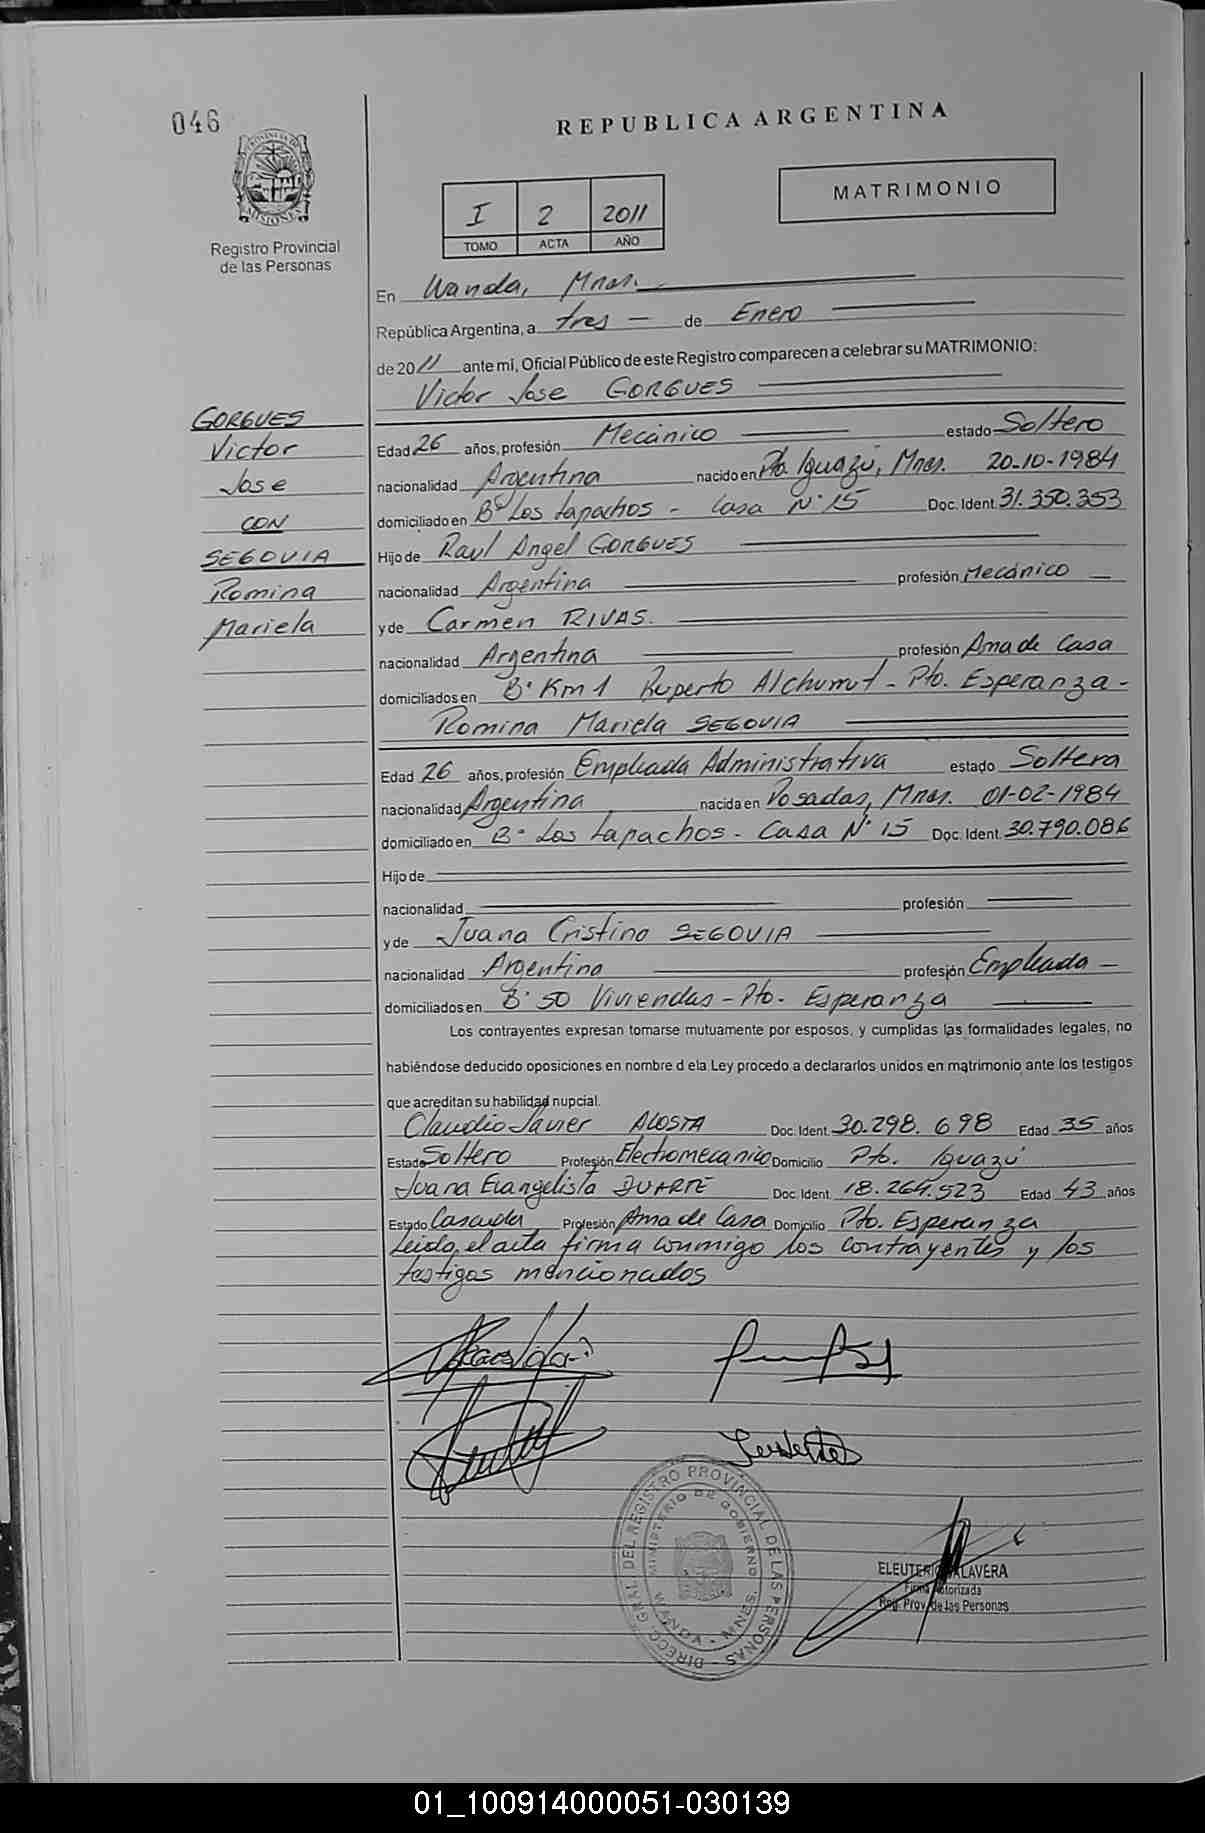 046
REPUBLICA ARGENTINA
PROVINCIA DE MISIONES
Registro Provincial
de las Personas
I 2 2011
TOMO ACTA AÑO
MATRIMONIO
En Wanda, Mnes.
República Argentina, a tres de Enero
de 2011 ante mi, Oficial Público de este Registro comparecen a celebrar su MATRIMONIO:
Victor Jose GORGUES
GORGUES
Victor
Jose
CON
SEGOVIA
Romina
Mariela
Edad 26 años, profesión Mecánico estado Soltero
nacionalidad Argentina nacido en Pto. Iguazú, Mnes. 20-10-1984
domiciliado en Bº Los Lapachos - Casa Nº 15 Doc. Ident. 31.350.353
Hijo de Raul Angel GORGUES
nacionalidad Argentina profesión Mecánico
y de Carmen RIVAS.
nacionalidad Argentina profesión Ama de Casa
domiciliados en Bº Km 1 Ruperto Alchumut - Pto. Esperanza -
Romina Mariela SEGOVIA
Edad 26 años, profesión Empleada Administrativa estado Soltera
nacionalidad Argentina nacida en Posadas, Mnes. 01-02-1984
domiciliado en Bº Los Lapachos - Casa Nº 15 Doc. Ident. 30.790.086
Hijo de
nacionalidad profesión
y de Juana Cristina SEGOVIA
nacionalidad Argentina profesión Empleada
domiciliados en Bº 50 Viviendas - Pto. Esperanza
Los contrayentes expresan tomarse mutuamente por esposos, y cumplidas las formalidades legales, no
habiéndose deducido oposiciones en nombre d ela Ley procedo a declararlos unidos en matrimonio ante los testigos
que acreditan su habilidad nupcial.
Claudio Javier ACOSTA Doc. Ident. 30.298.698 Edad 35 años
Estado Soltero Profesión Electromecanico Domicilio Pto. Iguazú
Juana Evangelista DUARTE Doc. Ident. 18.264.523 Edad 43 años
Estado Casada Profesión Ama de Casa Domicilio Pto. Esperanza
Leido, el acta firma conmigo los contrayentes y los
testigos mencionados
DIRECC. GRAL. DEL REGISTRO PROVINCIAL DE LAS PERSONAS
MINISTERIO DE GOBIERNO
WANDA - MNES.
ELEUTERIO TALAVERA
Firma Autorizada
Reg. Prov. de las Personas
01_100914000051-030139